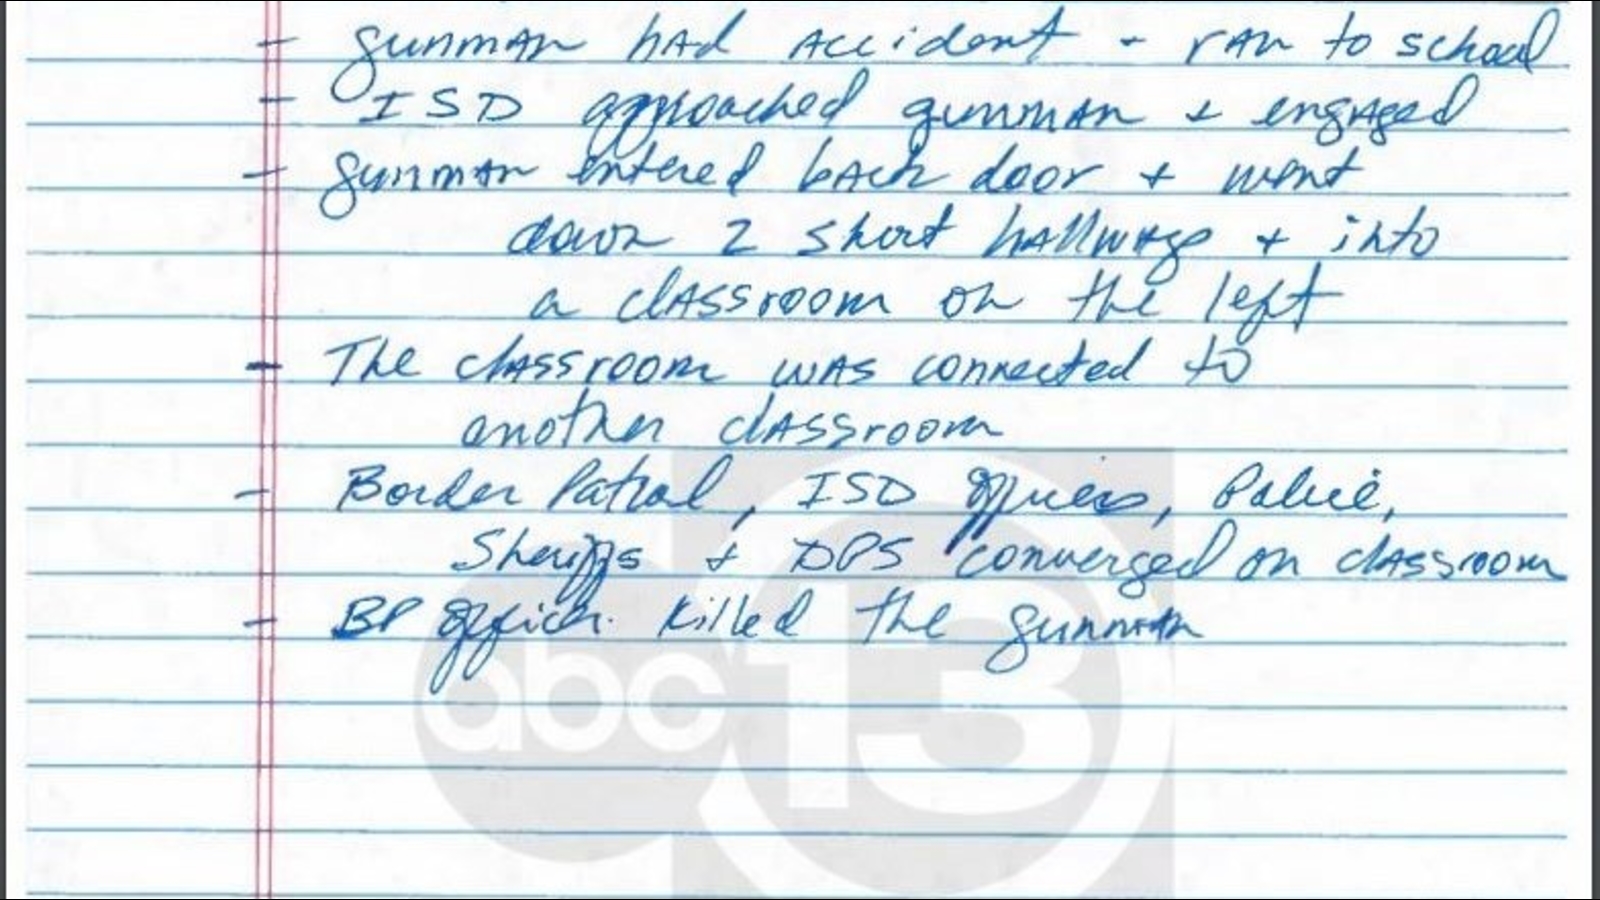 - gunman had accident - ran to school
- ISD approached gunman + engaged
- gunman entered back door + went
down 2 short hallways + into
a classroom on the left
- The classroom was connected to
another classroom
- Border Patrol, ISD officers, Police,
Sheriffs + DPS converged on classroom
- BP officer killed the gunman
abc 13